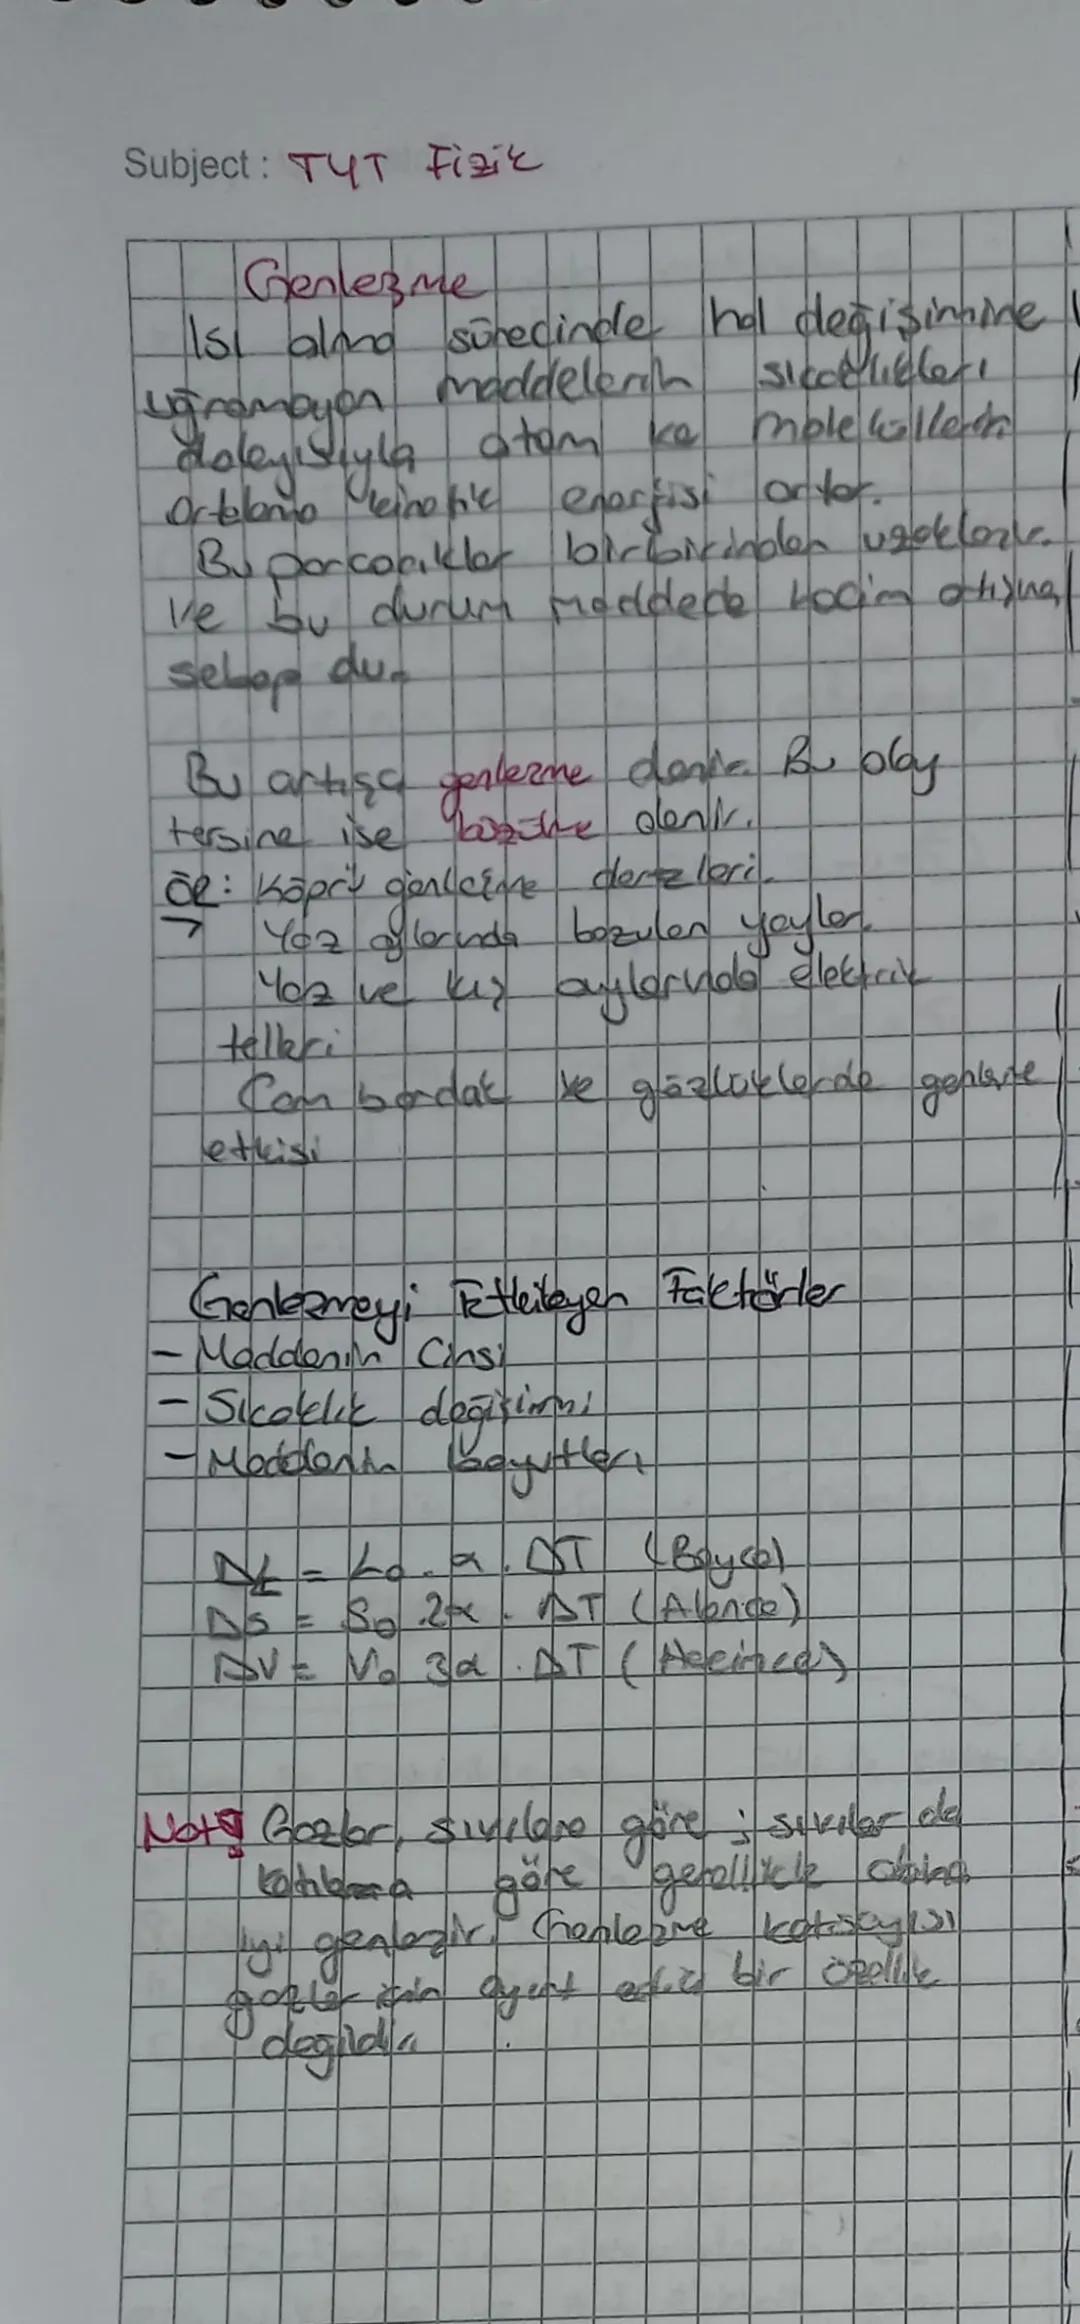 Subject: TYT Fizik
Genleşme
Isı alma sürecinde hal değişimine
uğramayan maddelerin sıcaklıkları
dolayısıyla atom ve moleküllerin
ortalama kinetik enerjisi artar.
Bu parçacıklar birbirinden uzaklaşır
ve bu durum maddede hacim artışına
sebep olur
Bu artışa genleşme denir. Bu olay
tersine ise büzülme denir.
ÖR: Köprü genleşme derzleri.
Yaz aylarında bozulan yaylar.
Yaz ve kış aylarında elektrik
telleri
Cam bardak ve gözlüklerde genleşme
etkisi
Genleşmeyi Etkileyen Faktörler
- Maddenin Cinsi
- Sıcaklık değişimi
- Maddenin boyutları
ΔL = L0 . α . ΔT (Boyca)
ΔS = S0 . 2α . ΔT (Alanca)
ΔV = V0 3α . ΔT (Hacimce)
Not! Gazlar, sıvılara göre ; sıvılar da
katılara göre genellikle daha
iyi genleşir. Genleşme katsayısı
gazlar için ayırt edici bir özellik
değildir.